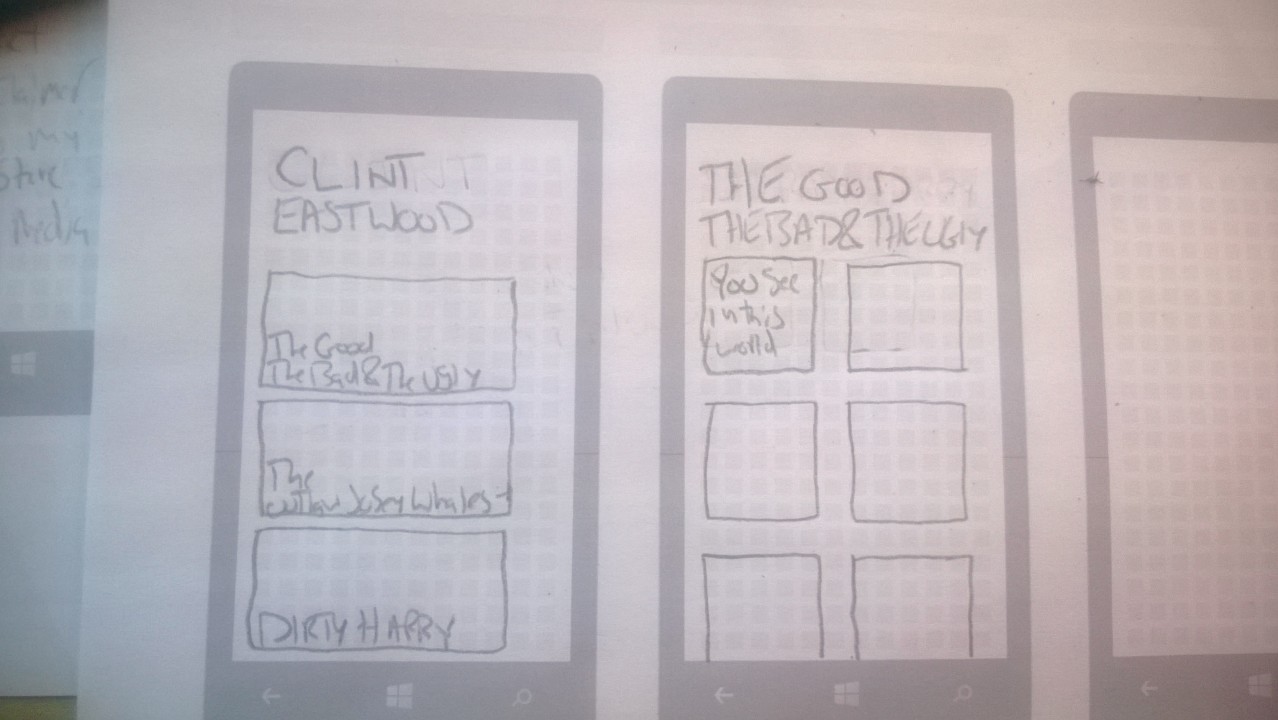 CLINT
EASTWOOD
The Good
The Bad & The Ugly
The
outlaw Josey Whales
DIRTY HARRY
THE GOOD
THE BAD & THE UGLY
You See
in this
world
my
Store
Media